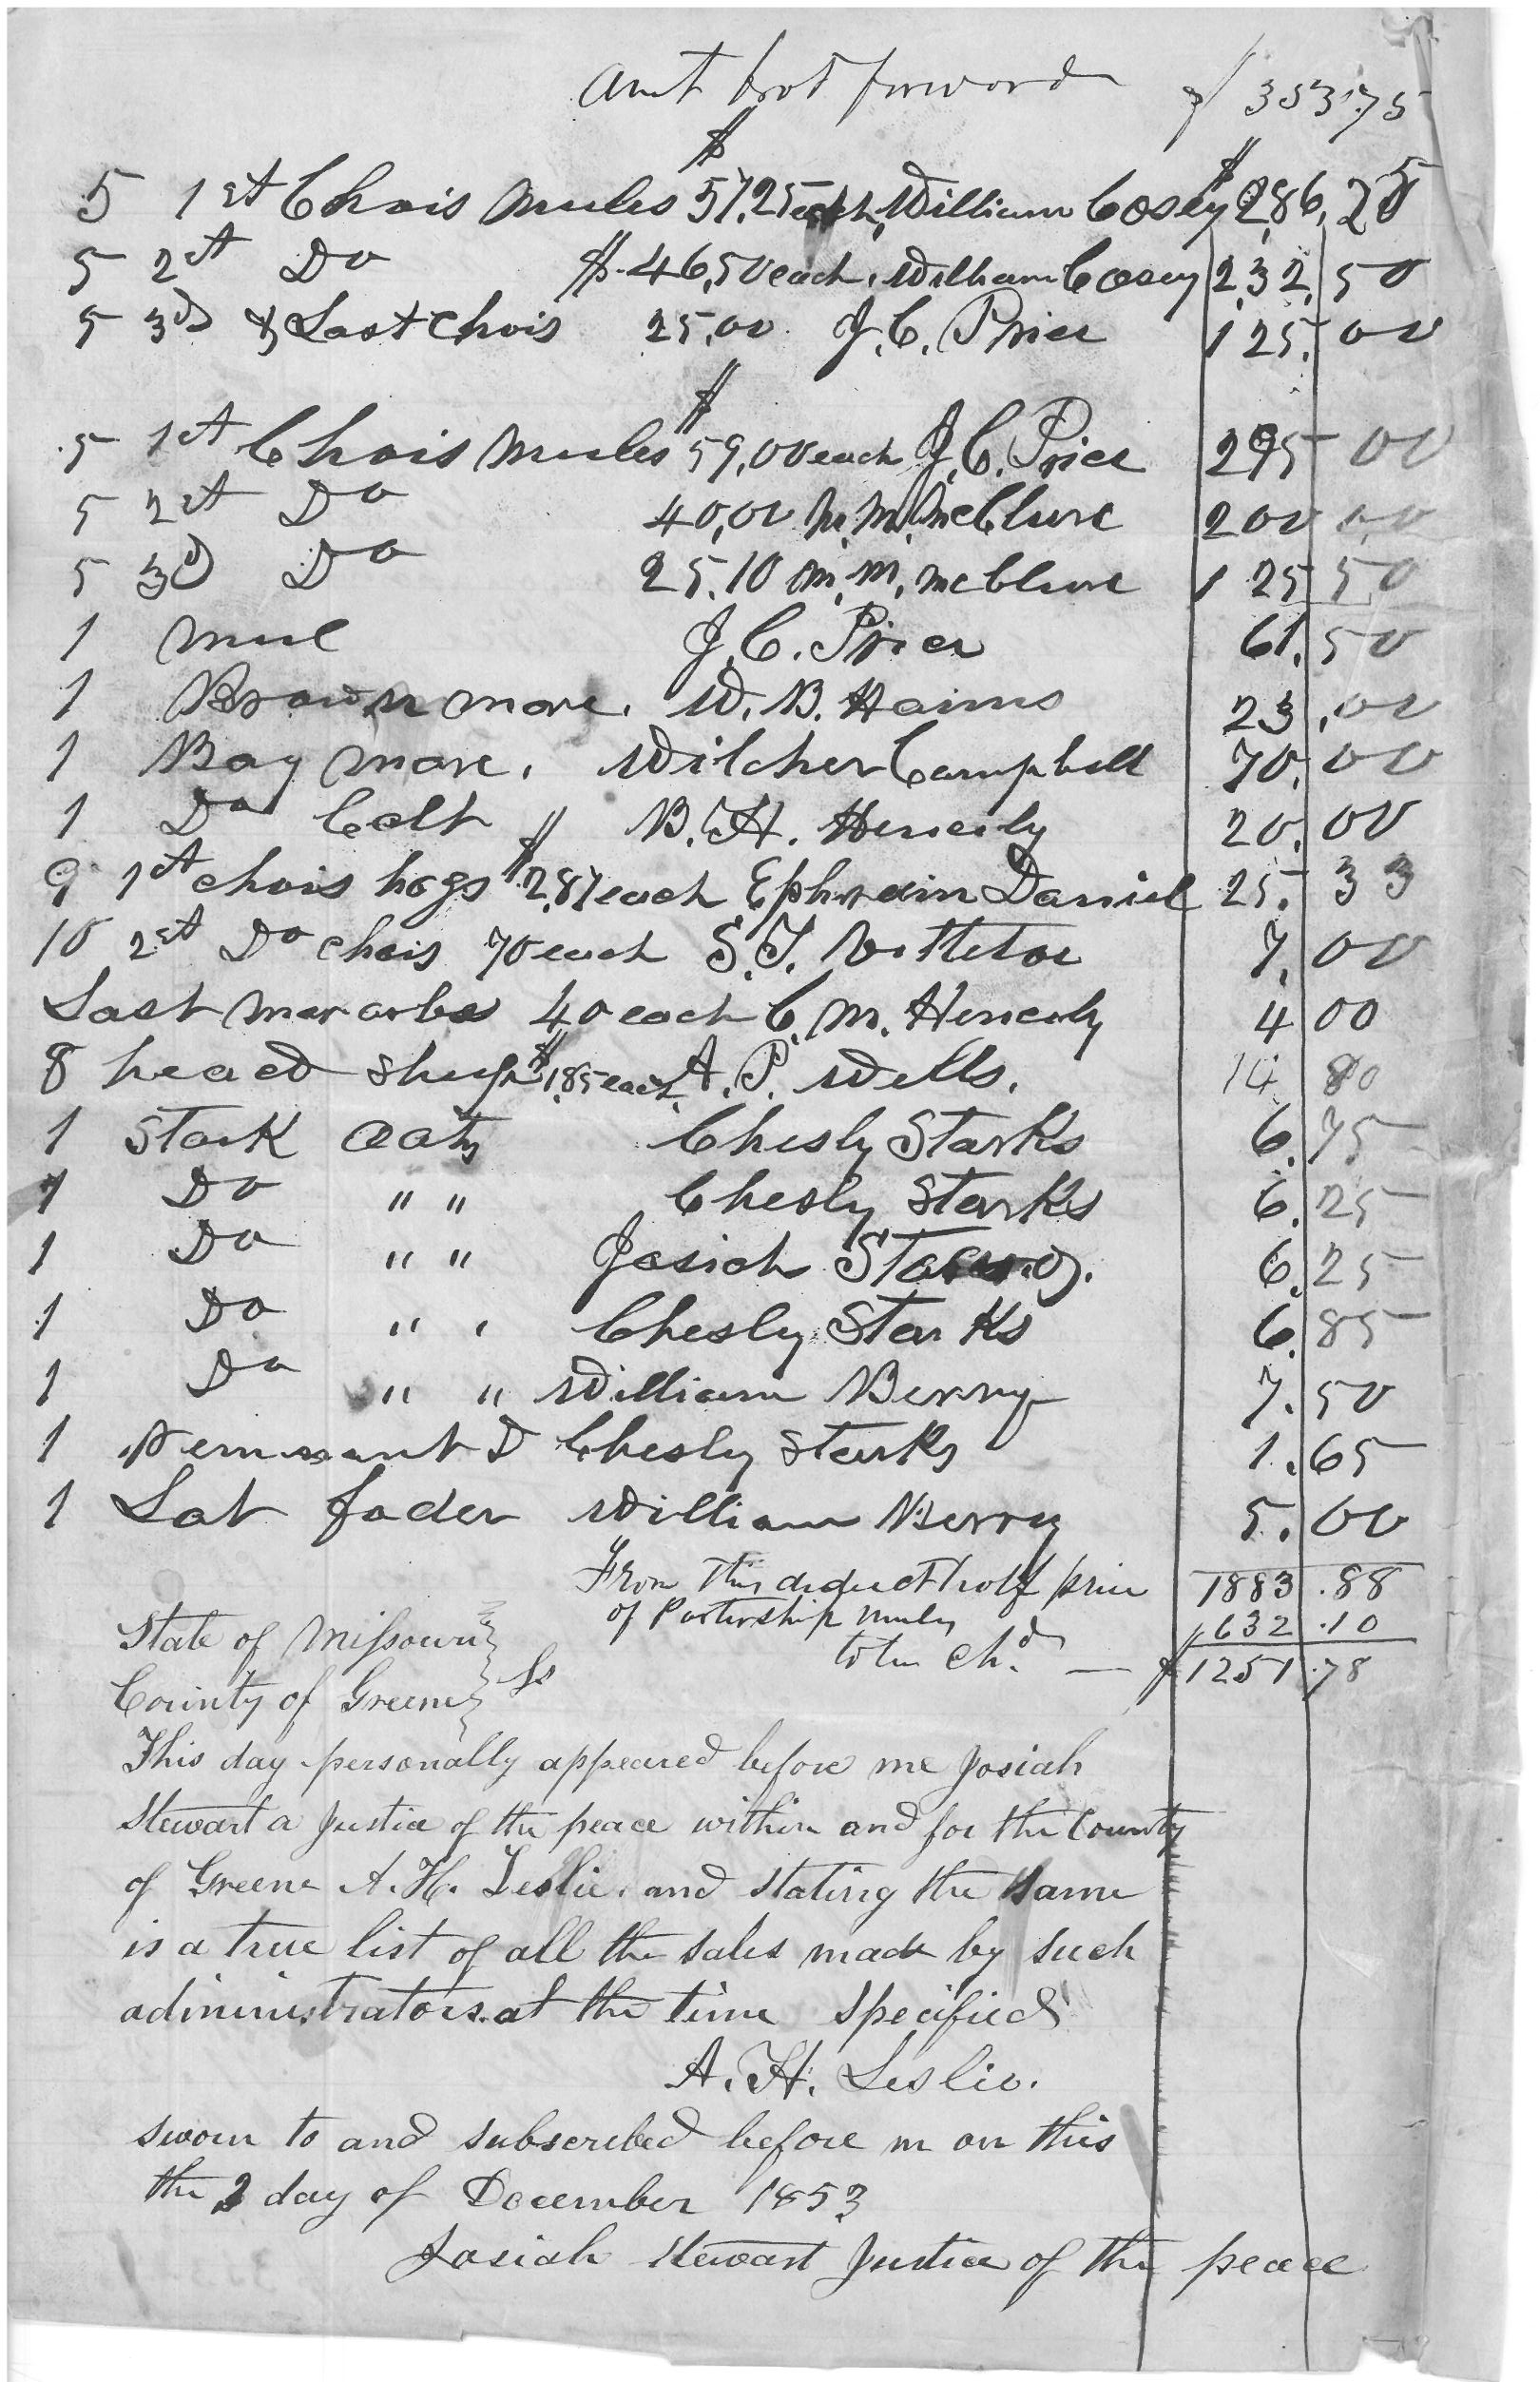 Amt brot forward $ 353.75
5 1st Chois mules $57,25 each, William Cosey $286,25
5 2st Do $.46,50 each, William Cosey 232,50
5 3d & Last Chois 25,00 J.C. Price 125.00
5 1st Chois mules $59,00 each J.C. Price 295 00
5 2st Do 40,00 M.M. McClure 200 00
5 3d Do 25.10 M.M. McClure 125 50
1 mul J.C. Price 61.50
1 Brown mare. W.B. Haims 23.00
1 Bay mare. Wilcher Campbell 70.00
1 Do Colt B.H. Henerly 20.00
9 1st chois hogs $2,87 each Ephraim Daniel 25.33
10 2st Do chois 70 each S.T. Vittetoe 7.00
Last 40 each C.M. Henerly 4 00
8 head sheep $1,85 each A.P. Wells. 14 80
1 Stack oats Chesly Starks 6.75
1 Do " " Chesly Starks 6.25
1 Do " " Josiah 6.25
1 Do " " Chesly Starks 6.85
1 Do " " William Berry 7.50
1 Remnant D Chesly Starks 1.65
1 Lot foder William Berry 5.00
From this deduct half price 1883.88
of Partership mules 632.10
to be Chd — $1251.78
State of Missouri } Ss
County of Greene }
This day personally appeared before me Josiah
Stewart a Justice of the peace within and for the County
of Greene A.H. Leslie. and stating the same
is a true list of all the sales made by such
administrators at the time specified
A.H. Leslie.
sworn to and subscribed before m on this
the 2 day of December 1853
Josiah Stewart Justice of the peace